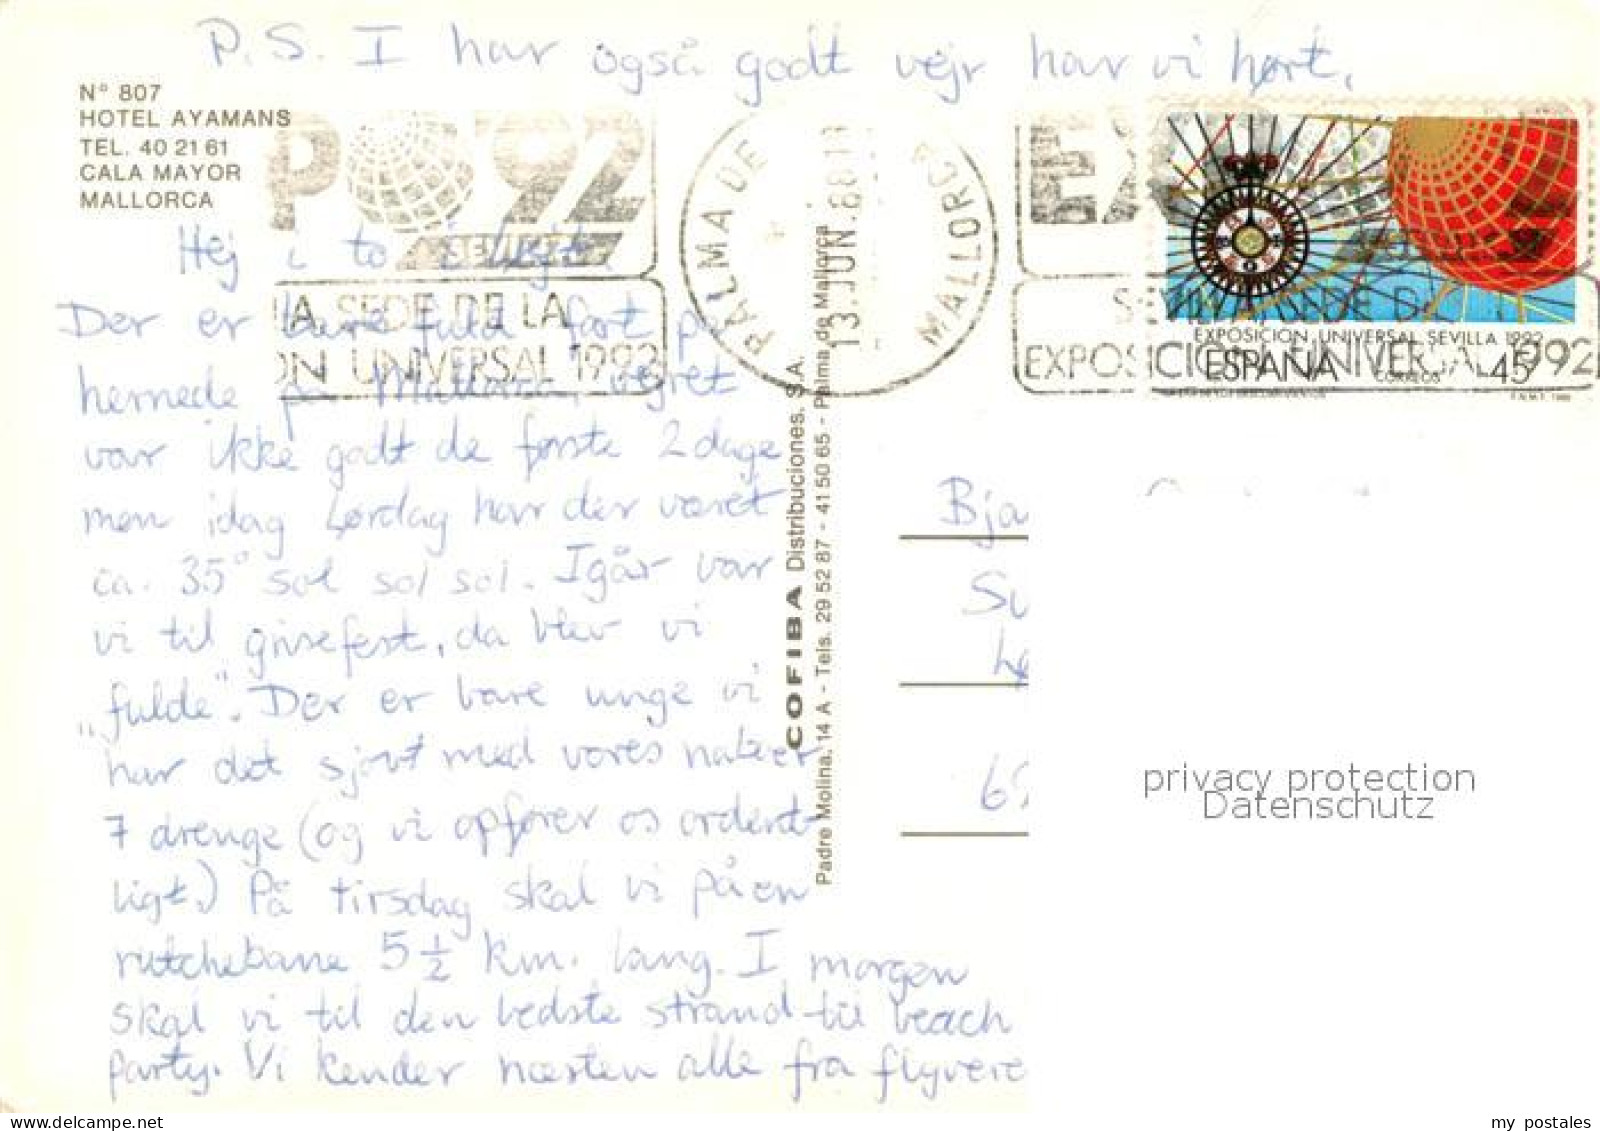 P.S. I har også godt vejr har vi hørt,
N° 807
HOTEL AYAMANS
TEL. 40 21 61
CALA MAYOR
MALLORCA
PO '92
SEVILLA
IA SEDE DE LA
ON UNIVERSAL 1992
PALMA DE MALLORCA
13.JUN.88
EX
SEDE DE
EXPOSICION UNIVERSAL 1992
EXPOSICION UNIVERSAL SEVILLA 1992
ESPAÑA CORREOS 45
F.N.M.T. 1988
Hej i to
Der er bare fuld fart på
hernede på Mallorca, vejret
var ikke godt de første 2 dage
men idag Lørdag har der været
ca. 35° sol sol sol. Igår var
vi til grisefest, da blev vi
"fulde". Der er bare unge vi
har det sjovt med vores naboer
7 drenge (og vi opfører os ordent-
ligt.) På tirsdag skal vi på en
rutchebane 5 1/2 km. lang. I morgen
skal vi til den bedste strand til beach
party. Vi kender næsten alle fra flyvere
COFIBA Distribuciones, S.A.
Padre Molina, 14 A - Tels. 29 52 87 - 41 50 65 - Palma de Mallorca
Bja
Su
Le
69
privacy protection
Datenschutz
my postales